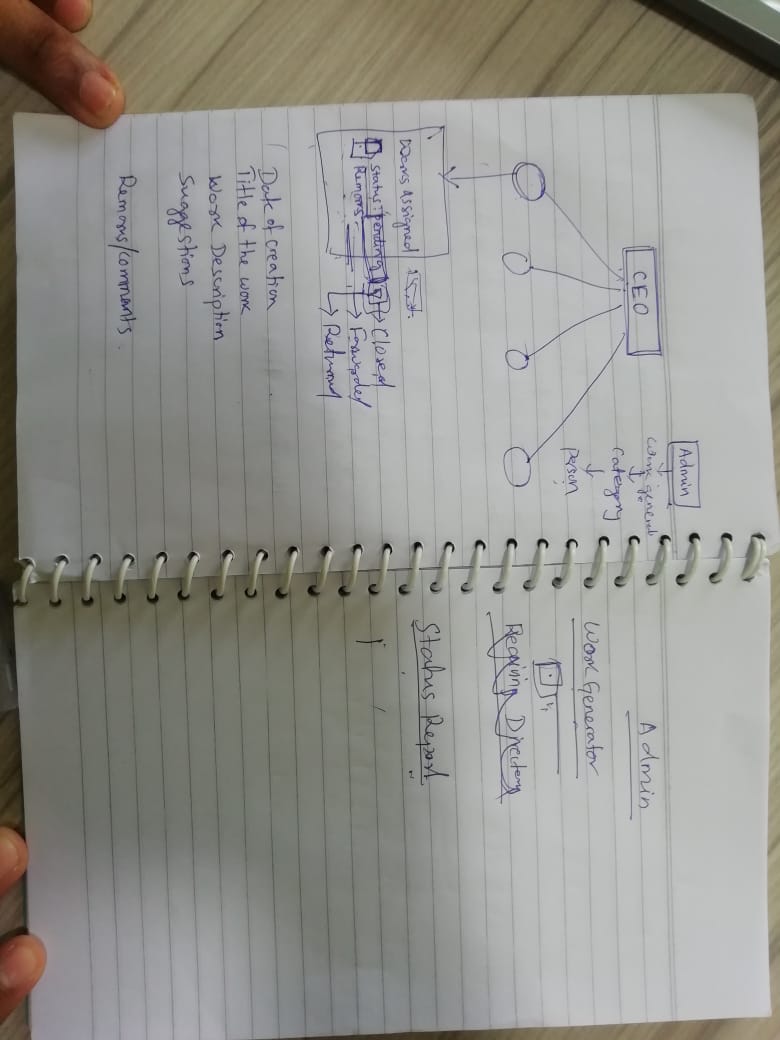 Admin
Work general
Category
Person
CEO
Works Assigned
Status: Pending
Remarks
Closed
Forwarded
Returned
Date of creation
Title of the work
Work Description
Suggestions
Remarks/comments
Admin
Work Generator
Directory
Status Report